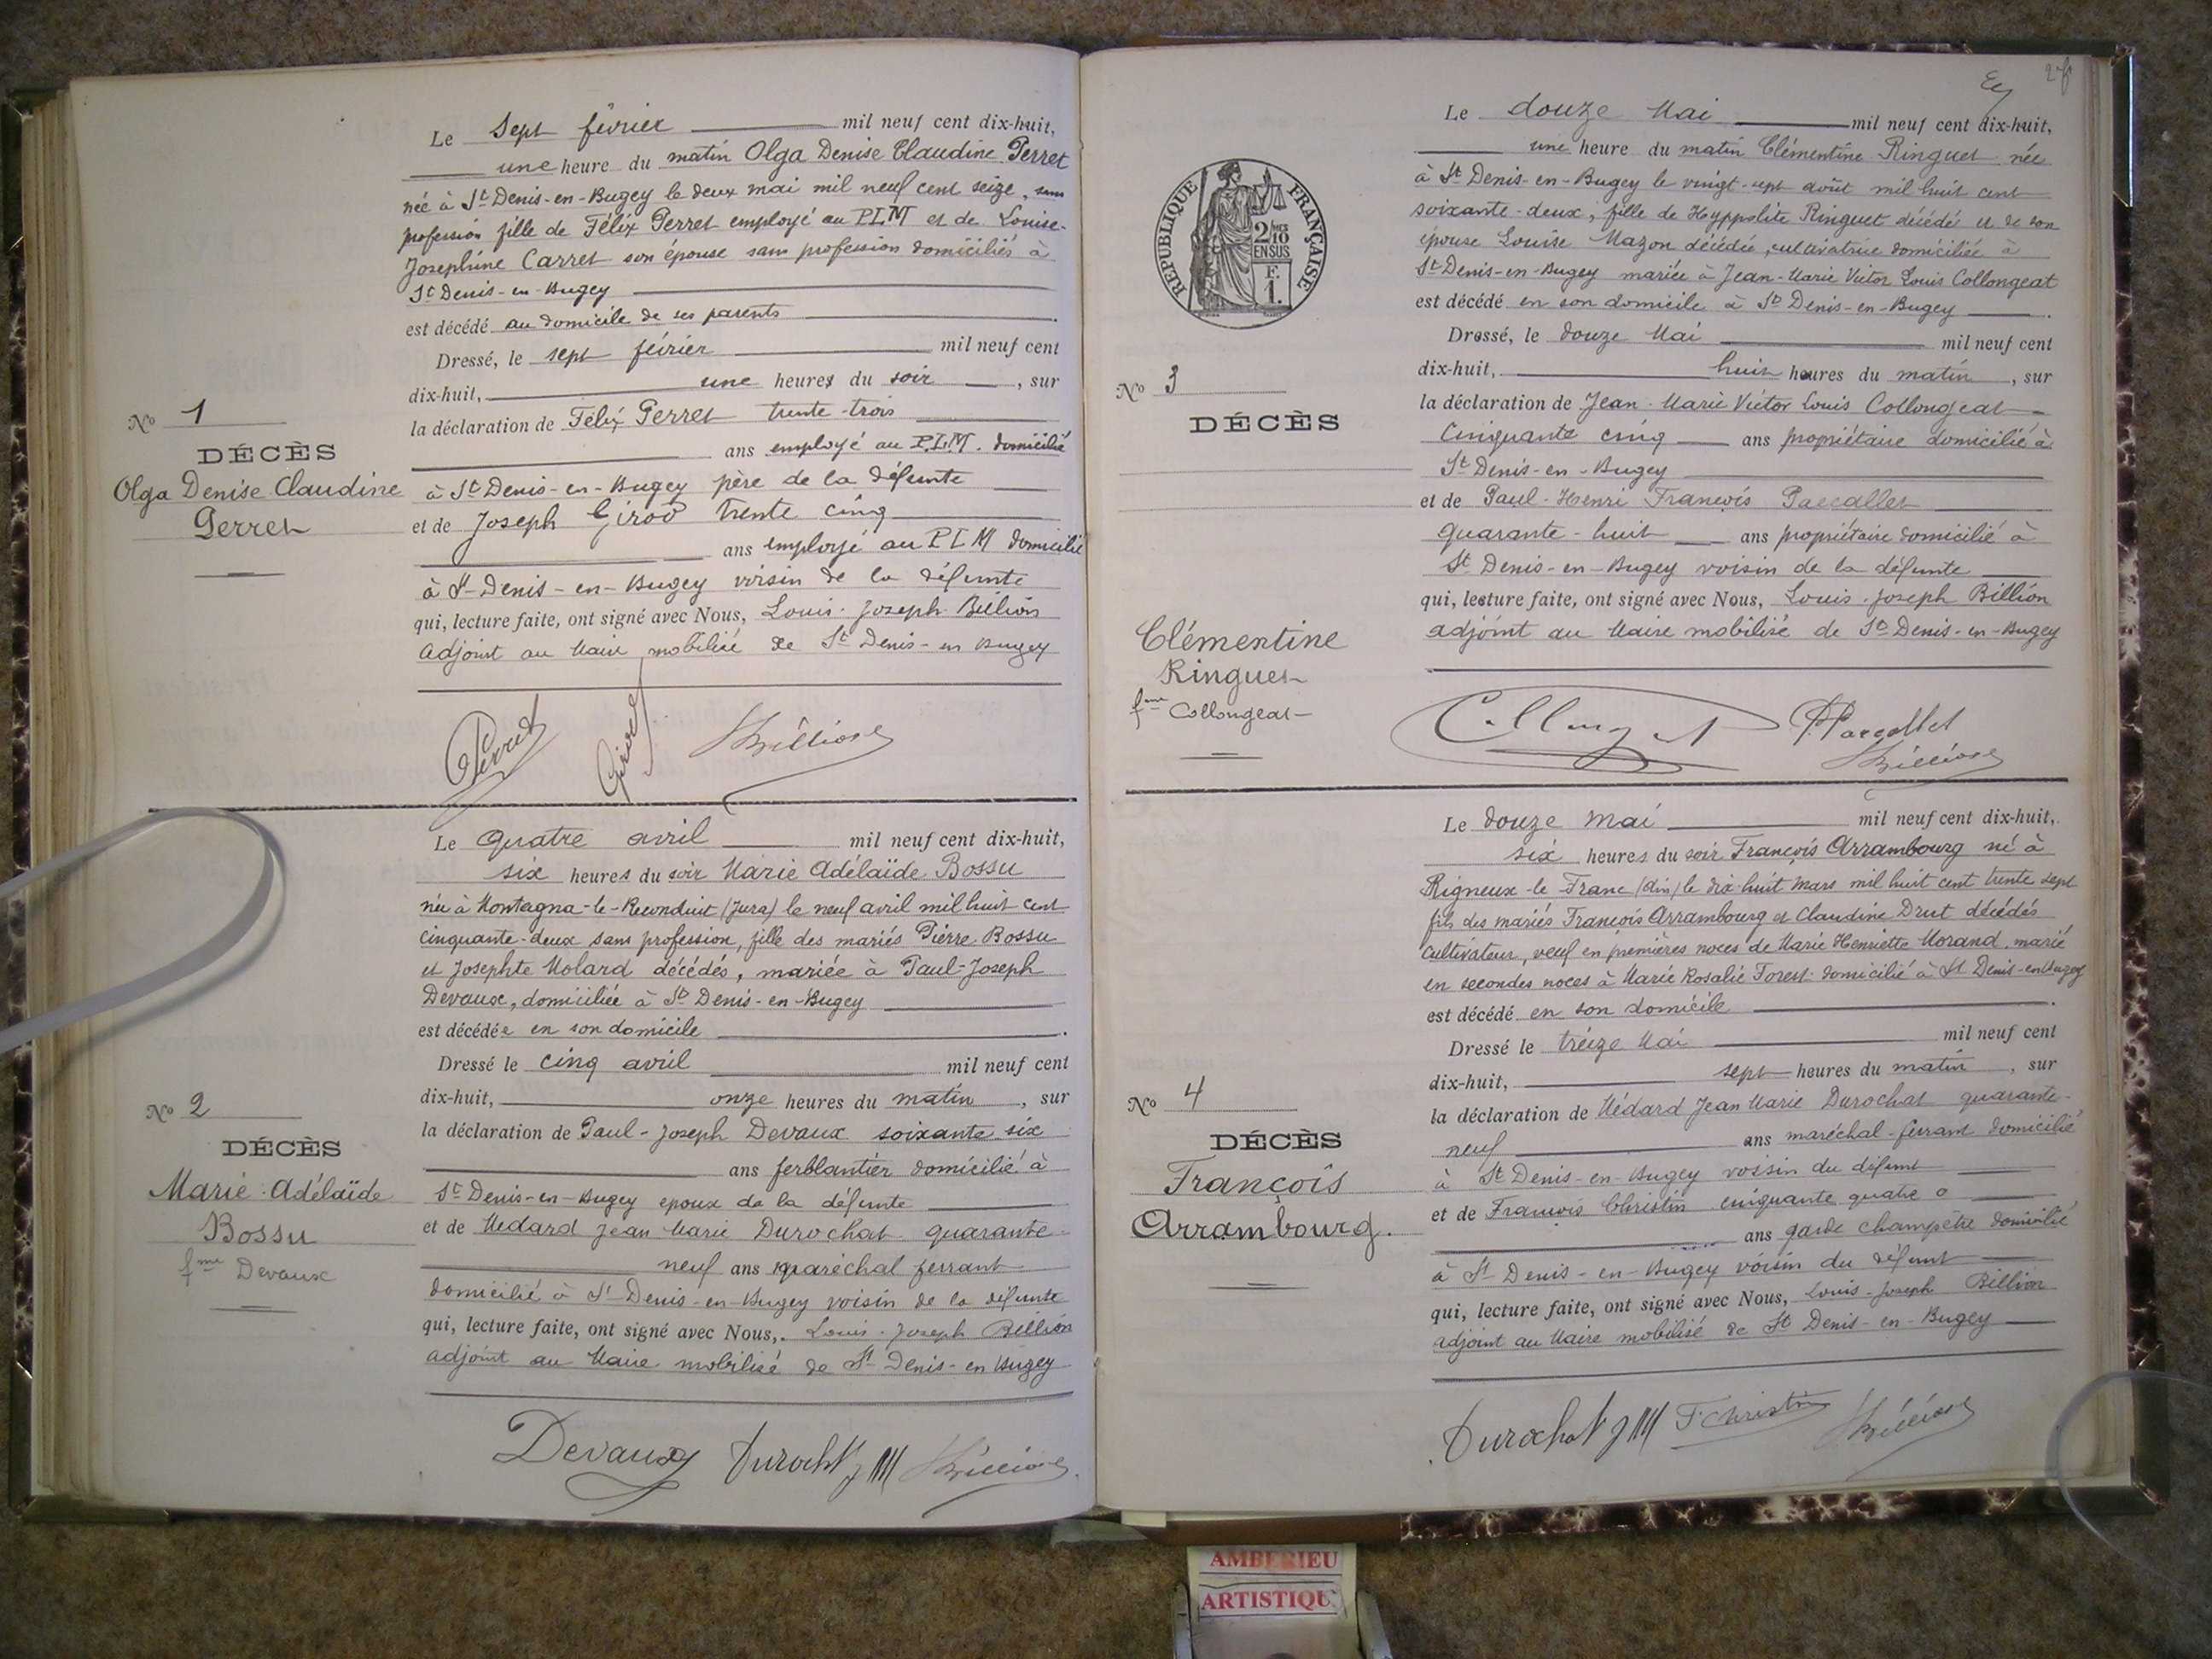 Le sept février mil neuf cent dix-huit,
une heure du matin Olga Denise Claudine Perret
née à St Denis-en-Bugey le deux mai mil neuf cent seize, sans
profession fille de Félix Perret employé au P.L.M et de Louise-
Josephine Carret son épouse sans profession domiciliés à
St Denis-en-Bugey
est décédé au domicile de ses parents
Dressé, le sept février mil neuf cent
dix-huit, une heures du soir, sur
la déclaration de Félix Perret trente-trois
ans employé au P.L.M. domicilié
à St Denis-en-Bugey père de la défunte
et de Joseph Girod trente cinq
ans employé au P L M domicilié
à St-Denis-en-Bugey voisin de la défunte
qui, lecture faite, ont signé avec Nous, Louis-Joseph Billion
adjoint au Maire mobilisé de St Denis-en Bugey
No 1
DÉCÈS
Olga Denise Claudine
Perret
Perret Girod Billion
Le quatre avril mil neuf cent dix-huit,
six heures du soir Marie Adélaïde Bossu
née à Montagna-le-Reconduit (Jura) le neuf avril mil huit cent
cinquante-deux sans profession, fille des mariés Pierre Bossu
et Josephte Molard décédés, mariée à Paul-Joseph
Devaux, domiciliée à St Denis-en-Bugey
est décédée en son domicile
Dressé le cinq avril mil neuf cent
dix-huit, onze heures du matin, sur
la déclaration de Paul-Joseph Devaux soixante six
ans ferblantier domicilié à
St Denis-en-Bugey epoux de la défunte
et de Médard Jean Marie Durochat quarante-
neuf ans maréchal ferrant
domicilié à St Denis-en-Bugey voisin de la défunte
qui, lecture faite, ont signé avec Nous, Louis-Joseph Billion
adjoint au Maire mobilisé de St-Denis-en Bugey
No 2
DÉCÈS
Marie-Adélaïde
Bossu
fme Devaux
Devaux Durochat J M Billion
RÉPUBLIQUE FRANÇAISE
2/10
EN SUS
F.
1.
Le douze Mai mil neuf cent dix-huit,
une heure du matin Clémentine Ringuet née
à St Denis-en-Bugey le vingt-sept août mil huit cent
soixante-deux, fille de Hyppolite Ringuet décédé et de son
épouse Louise Mazon décédée, cultivatrice domiciliée à
St Denis-en-Bugey mariée à Jean-Marie Victor Louis Collongeat
est décédé en son domicile à St Denis-en-Bugey
Dressé, le douze Mai mil neuf cent
dix-huit, huit heures du matin, sur
la déclaration de Jean-Marie Victor Louis Collongeat
cinquante cinq ans propriétaire domicilié à
St Denis-en-Bugey
et de Paul-Henri François Parcallet
quarante-huit ans propriétaire domicilié à
St Denis-en-Bugey voisin de la défunte
qui, lecture faite, ont signé avec Nous, Louis-Joseph Billion
adjoint au Maire mobilisé de St Denis-en-Bugey
No 3
DÉCÈS
Clémentine
Ringuet
fme Collongeat
Collongeat Parcallet
Billion
Le douze mai mil neuf cent dix-huit,
six heures du soir François Arrambourg né à
Rigneux-le-Franc (Ain) le dix-huit mars mil huit cent trente sept
fils des mariés François Arrambourg et Claudine Drut décédés
cultivateur, veuf en premières noces de Marie Henriette Morand, marié
en secondes noces à Marie Rosalie Forest domicilié à St Denis-en-Bugey
est décédé en son domicile
Dressé le treize Mai mil neuf cent
dix-huit, sept heures du matin, sur
la déclaration de Médard Jean Marie Durochat quarante-
neuf ans maréchal-ferrant domicilié
à St Denis-en-Bugey voisin du défunt
et de François Christin cinquante quatre
ans garde champêtre domicilié
à St-Denis-en-Bugey voisin du défunt
qui, lecture faite, ont signé avec Nous, Louis-Joseph Billion
adjoint au Maire mobilisé de St Denis-en-Bugey
No 4
DÉCÈS
François
Arrambourg.
Durochat J M F Christin Billion
AMBERIEU
ARTISTIQU